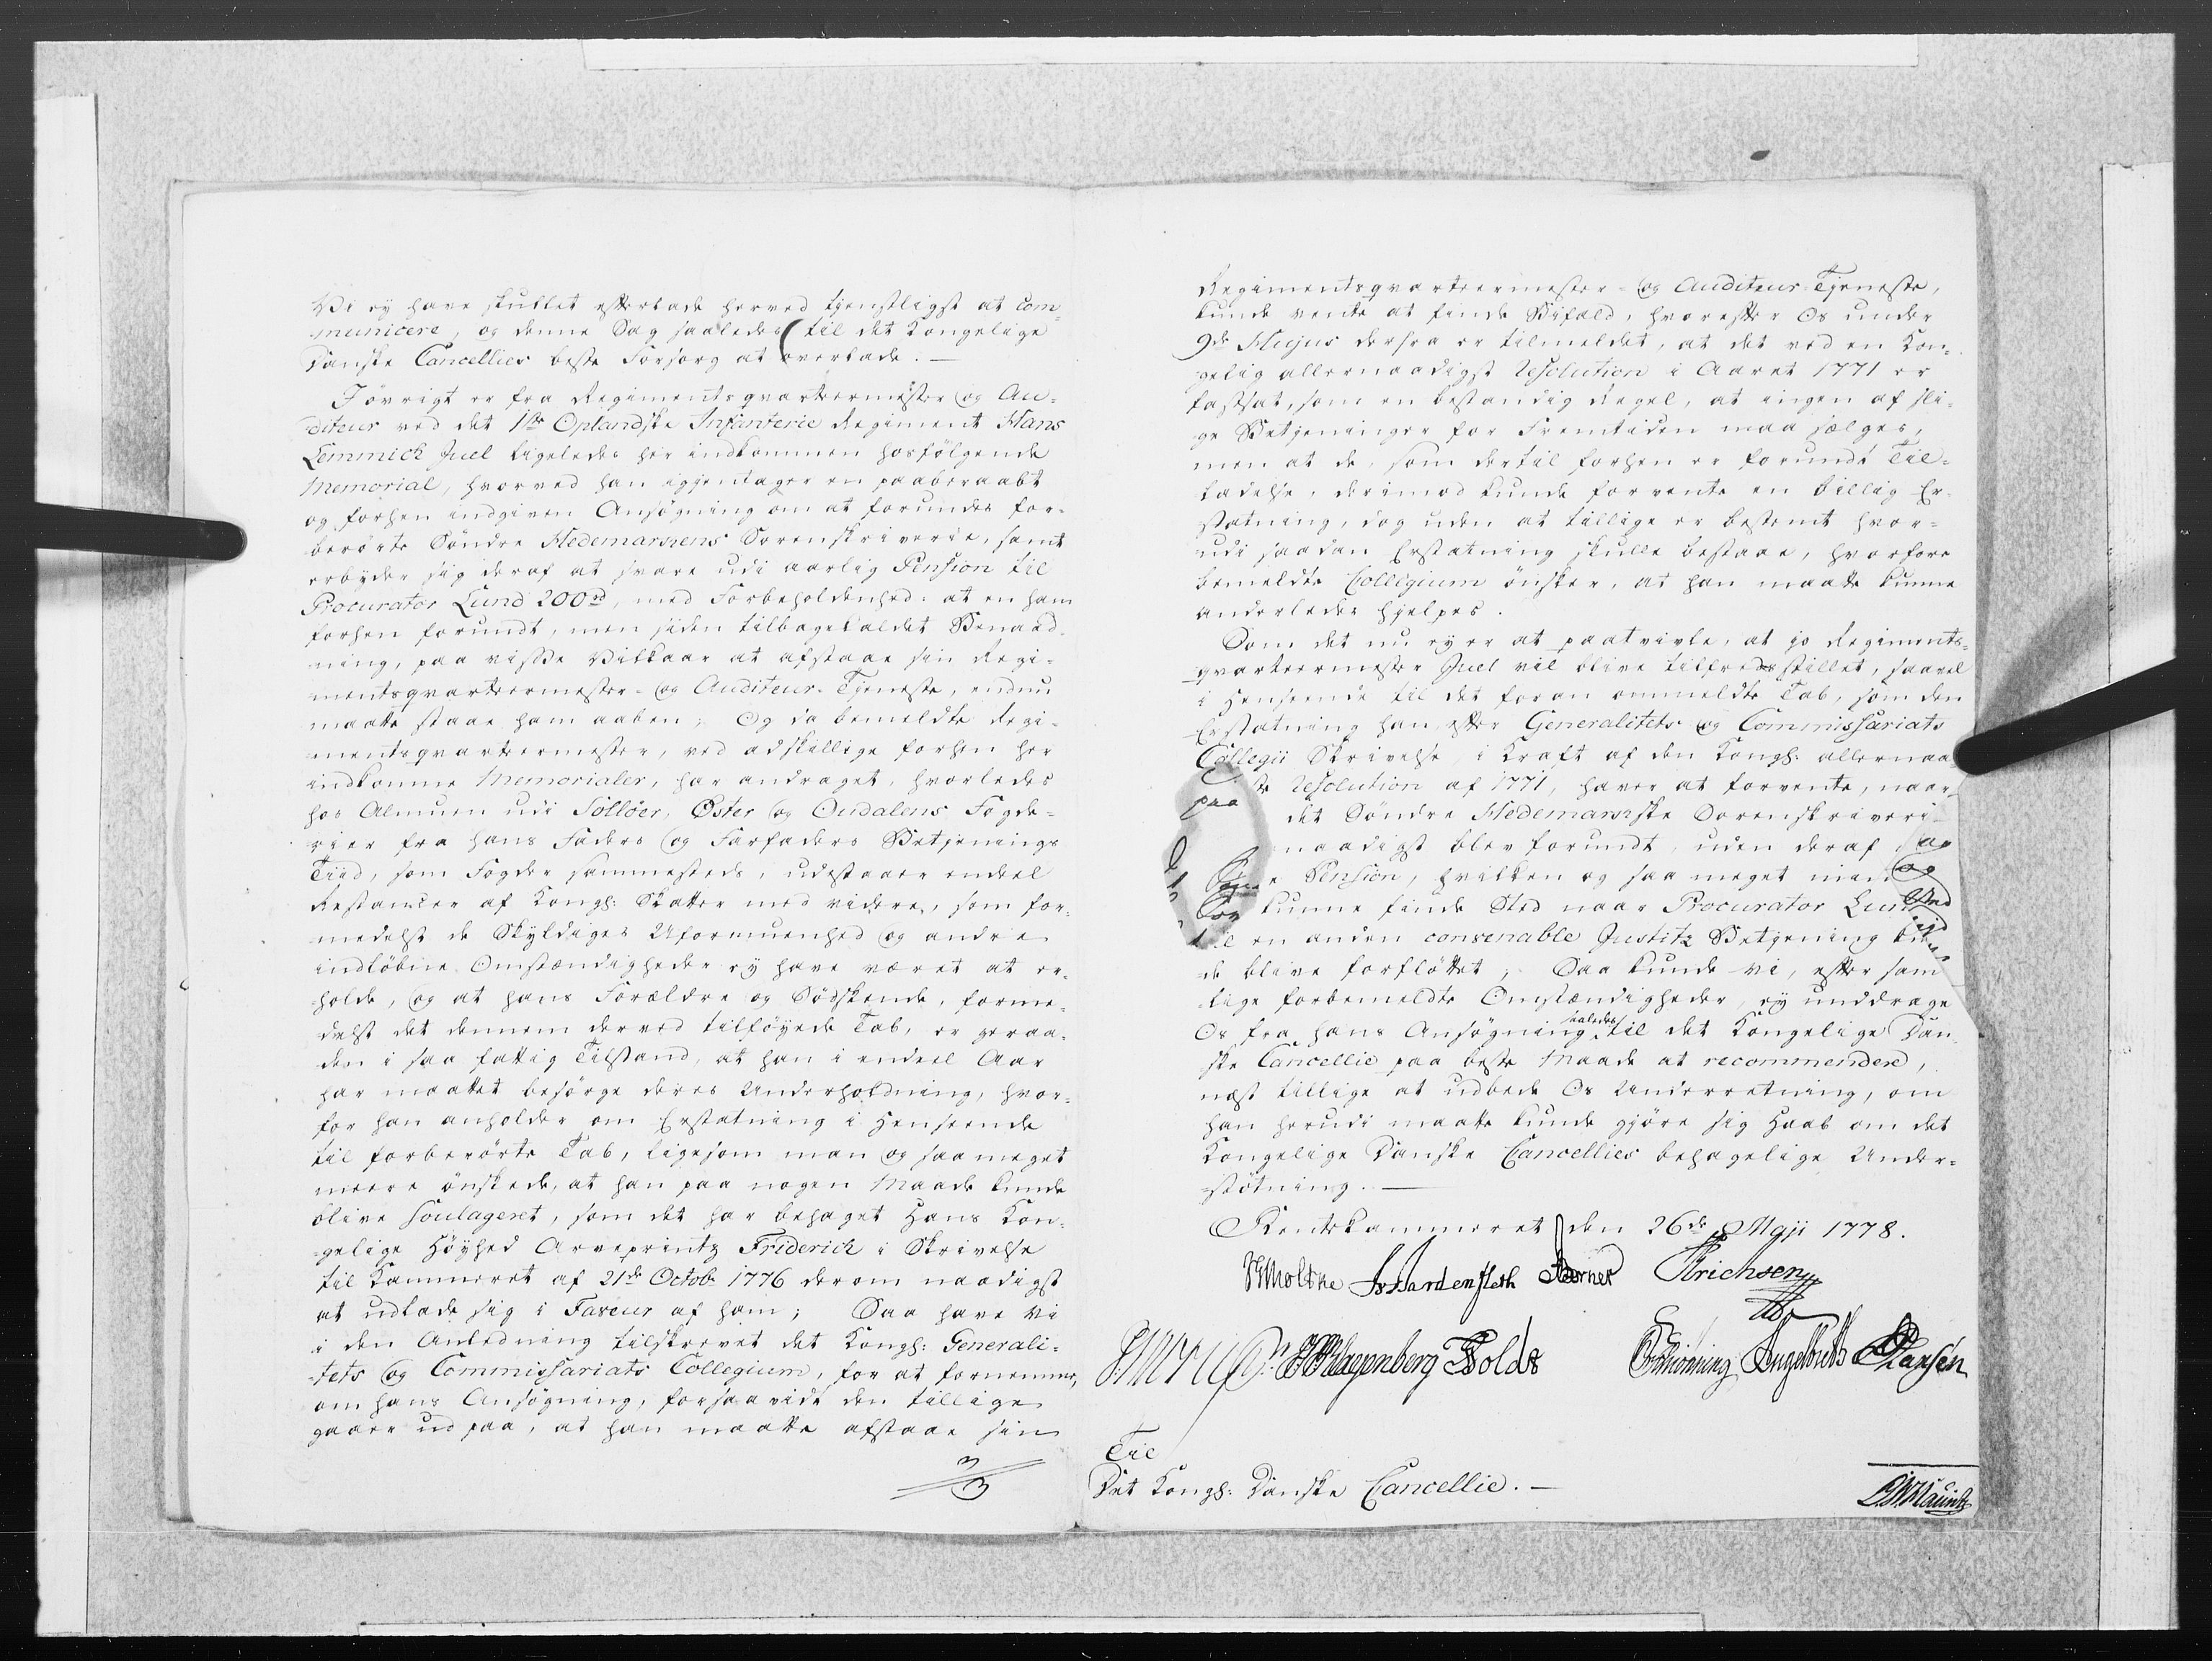 Vi ey have skullet efterlade herved tienstligst at Com-
municere, og denne Sag saaledes til det Kongelige
Danske Cancellies beste Forsorg at overlade. —
Iøvrigt er fra Regimentsqvarteermester og Au-
diteur ved det 1ste Oplandske Infanterie Regiment Hans
Lemmich Juel ligeledes her indkommen hosfølgende
Memorial, hvorved han igientager en paaberaabt
og forhen indgiven Ansøgning om at forundes for-
berørte Søndre Hedemarkens Sorenskriverie, samt
erbyder sig deraf at svare udi aarlig Pension til
Procurator Lund 200rd, med Forbeholdenhed: at en ham
forhen forundt, men siden tilbagekaldet Benaad-
ning, paa visse Vilkaar at afstaae sin Regi-
mentsqvarteermester- og Auditeur-Tieneste, endnu
maatte staae ham aaben; Og da bemeldte Regi-
mentsqvarteermester, ved adskillige forhen her
indkomne Memorialer, har andraget, hvorledes
hos Almuen udi Solløer, Øster og Oudalens Fogde-
rier fra hans Faders og Farfaders Betienings
Tiid, som Fogder sammesteds, udestaaer endeel
Restancer af Kongl: Skatter med videre, som for-
medelst de Skyldiges Uformuenhed og andre
indløbne Omstændigheder ey have været at er-
holde, og at hans Forældre og Sødskende, forme-
delst det dennem derved tilføyede Tab, er geraa-
den i saa fattig Tilstand, at han i endeel Aar
har maattet besørge deres Underholdning, hvor-
for han anholder om Erstatning i Henseende
til forberørte Tab, ligesom man og saa meget
meere ønskede, at han paa nogen Maade kunde
blive soulageret, som det har behaget Hans Kon-
gelige Høyhed Arveprintz Friderich i Skrivelse
til Kammeret af 21de Octob: 1776 derom naadigst
at udlade sig i Faveur af ham; Saa have Vi
i den Anledning tilskrevet det Kongl: Generali-
tets og Commissariats Collegium, for at fornemme,
om hans Ansøgning, forsaavidt den tillige
gaaer ud paa, at han maatte afstaae sin
Regimentsqvarteermester- og Auditeur-Tieneste,
kunde vente at finde Bifald, hvorefter Os under
9de Hujus derfra er tilmeldet, at det ved en Kon-
gelig allernaadigst Resolution i Aaret 1771 er
fastsat, som en bestandig Regel, at ingen af sli-
ge Betieninger for Fremtiden maa sælges,
men at de, som dertil forhen er forundt Til-
ladelse, derimod kunde forvente en billig Er-
statning, dog uden at tillige er bestemt hvor-
udi saadan Erstatning skulle bestaae, hvorfore
bemeldte Collegium ønsker, at han maatte kunne
anderledes hielpes.
Som det nu ey er at paatvivle, at jo Regiments-
qvarteermester Juel vil blive tilfredsstillet, saavel
i Henseende til det foran ommeldte Tab, som den
Erstatning han efter Generalitets og Commissariats
Collegii Skrivelse, i Kraft af den Kongl: allernaa-
ste Resolution af 1771, haver at forvente, naar
det Søndre Hedemarkske Sorenskriveri-
naadigst blev forundt, uden deraf
Pension, hvilken og saa meget
kunne finde Sted naar Procurator Lund
til en anden convenable Justitz Betiening
de blive forfløttet, Saa kunde vi, efter sam-
lige forbemeldte Omstændigheder, ey unddrage
Os fra hans Ansøgning saaledes til det Kongelige Dan-
ske Cancellie paa beste Maade at recommendere,
næst tillige at udbede Os Underretning, om
han herudi maatte kunde giøre sig Haab om det
Kongelige Danske Cancellies behagelige Under-
støtning. —
Rentekammeret den 26de Maji 1778.
Moltke J Hardenfleth Berner Erichsen
Wagenberg Holdt Schiønning Engelbret Hansen
Til
Det Kongl: Danske Cancellie. —